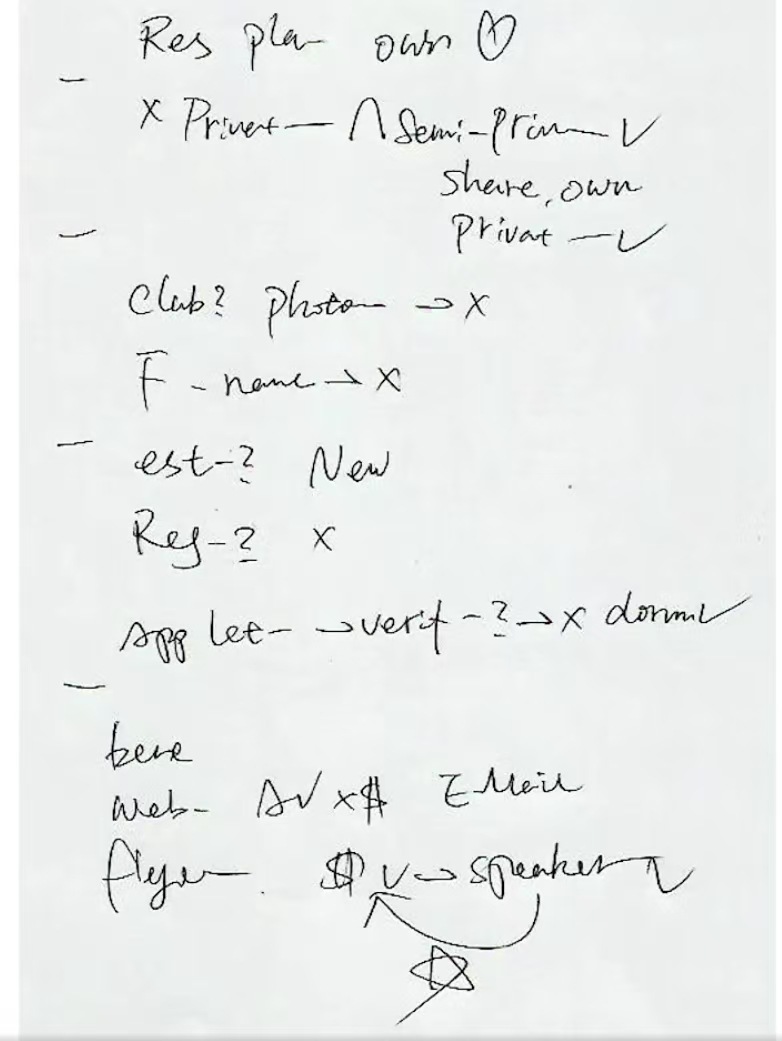 Res pla- own
x Privat— Semi-Priv— ✓
share, own
Privat — ✓
Club? Photo— → x
F - name → x
est-? New
Reg-? x
App Let- → verif - ? → x dorm ✓
bene
Web- x $ E Mail
flyer— $ ✓ → speaker